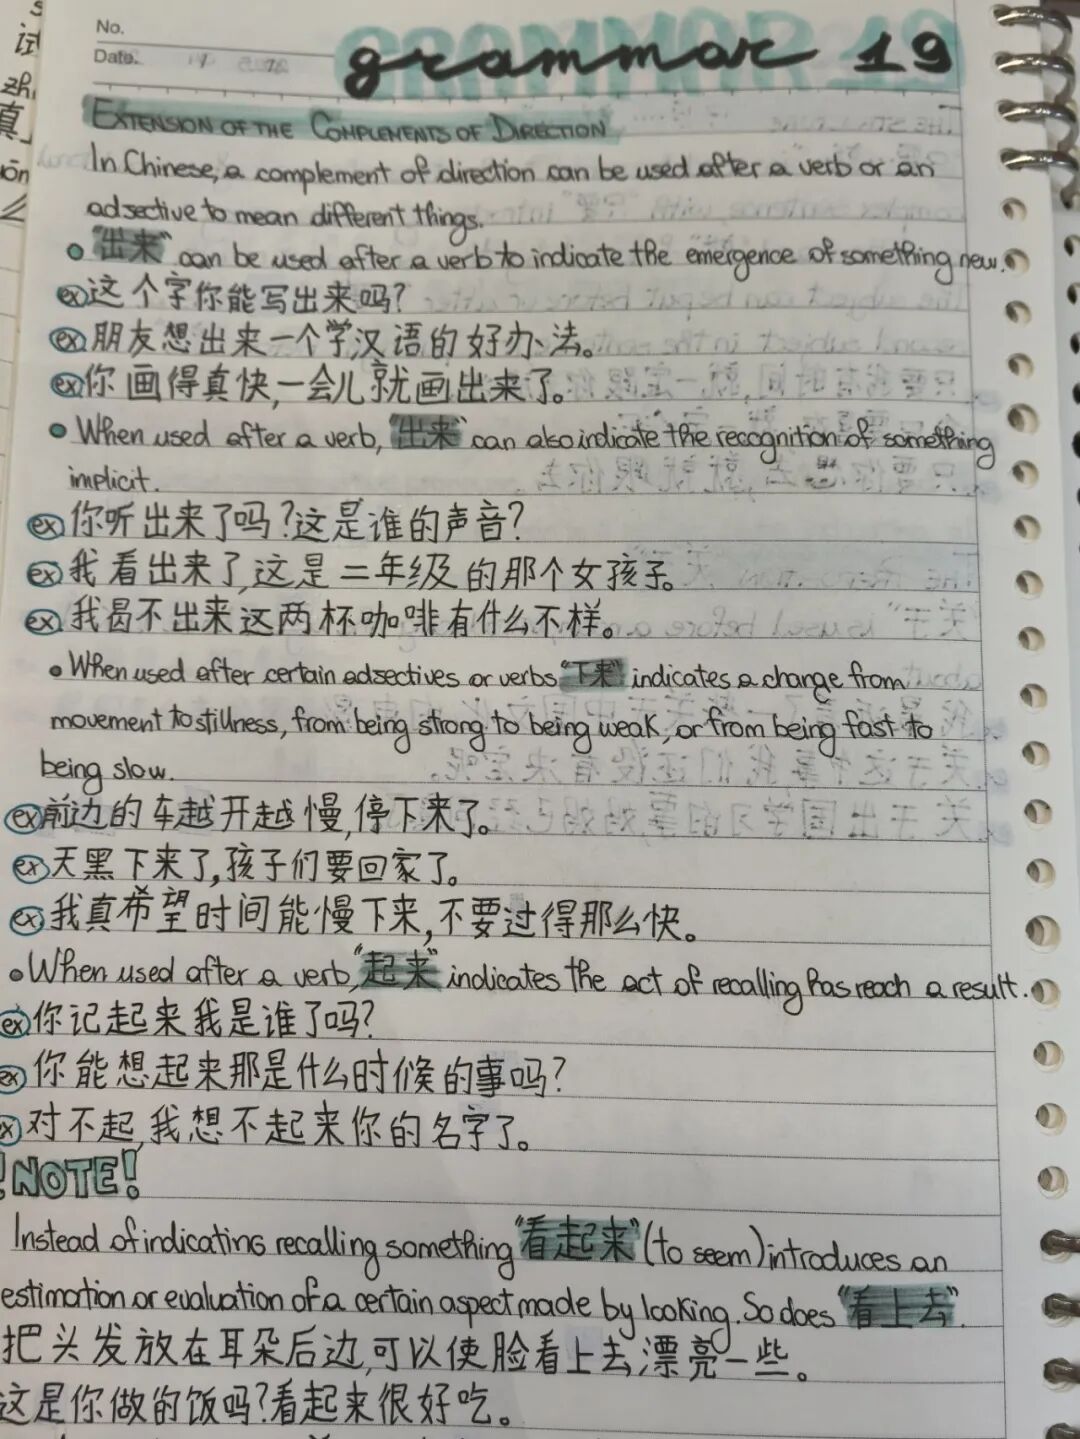 No.
Date.
grammar 19
EXTENSION OF THE COMPLEMENTS OF DIRECTION
In Chinese, a complement of direction can be used after a verb or an
adsective to mean different things.
"出来" can be used after a verb to indicate the emergence of something new.
ex 这个字你能写出来吗?
ex 朋友想出来一个学汉语的好办法。
ex 你画得真快,一会儿就画出来了。
When used after a verb, "出来" can also indicate the recognition of something
implicit.
ex 你听出来了吗?这是谁的声音?
ex 我看出来了,这是二年级的那个女孩子。
ex 我曷不出来这两杯咖啡有什么不样。
When used after certain adsectives or verbs "下来" indicates a change from
movement to stillness, from being strong to being weak, or from being fast to
being slow.
ex 前边的车越开越慢,停下来了。
ex 天黑下来了,孩子们要回家了。
ex 我真希望时间能慢下来,不要过得那么快。
When used after a verb, "起来" indicates the act of recalling has reach a result.
ex 你记起来我是谁了吗?
ex 你能想起来那是什么时候的事吗?
ex 对不起,我想不起来你的名字了。
!NOTE!
Instead of indicating recalling something "看起来" (to seem) introduces an
estimation or evaluation of a certain aspect made by looking. So does "看上去".
把头发放在耳朵后边,可以使脸看上去漂亮一些。
这是你做的饭吗?看起来很好吃。